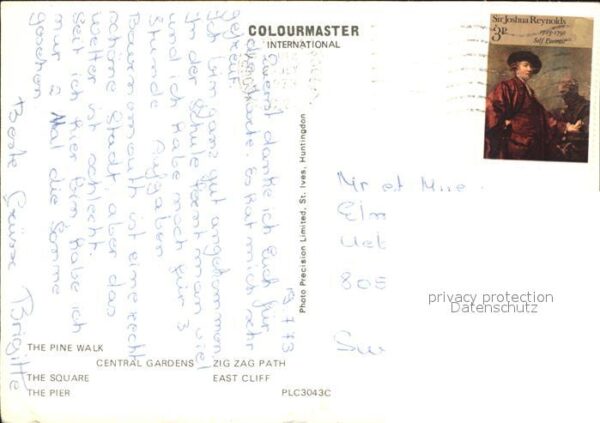 COLOURMASTER
INTERNATIONAL
Sir Joshua Reynolds
1723-1792
Self Portrait
3P
Zuerst danke ich Euch für
die Karte. Es hat mich sehr
gefreut.
Ich bin ganz gut angekommen
In der Schule lernt man viel
und ich habe noch für 3
Stunde Aufgaben
Bournemouth ist eine recht
schöne Stadt, aber das
Wetter ist schlecht.
Seit ich hier bin habe ich
nur 2 Mal die Sonne
gesehen
Beste Grüsse Brigitte
Photo Precision Limited, St. Ives, Huntingdon
Mr et Mme
Elm
Uet
80
privacy protection
Datenschutz
THE PINE WALK
CENTRAL GARDENS ZIG ZAG PATH
THE SQUARE EAST CLIFF
THE PIER PLC3043C